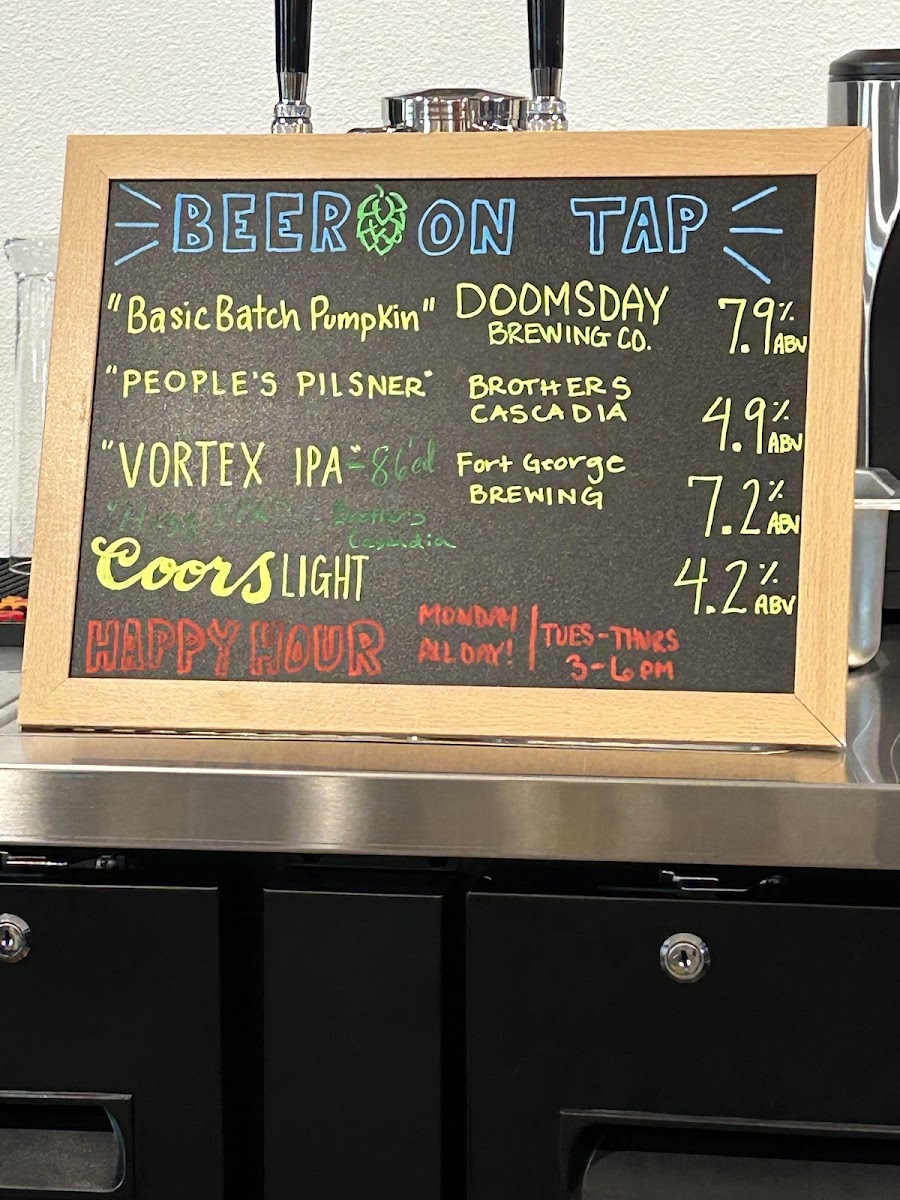 BEER ON TAP
"Basic Batch Pumpkin" DOOMSDAY BREWING CO. 7.9% ABV
"PEOPLE'S PILSNER" BROTHERS CASCADIA 4.9% ABV
"VORTEX IPA" - 86'd Fort George BREWING 7.2% ABV
Brothers
Cascadia
Coors LIGHT 4.2% ABV
HAPPY HOUR MONDAY ALL DAY! TUES-THURS 3-6 PM